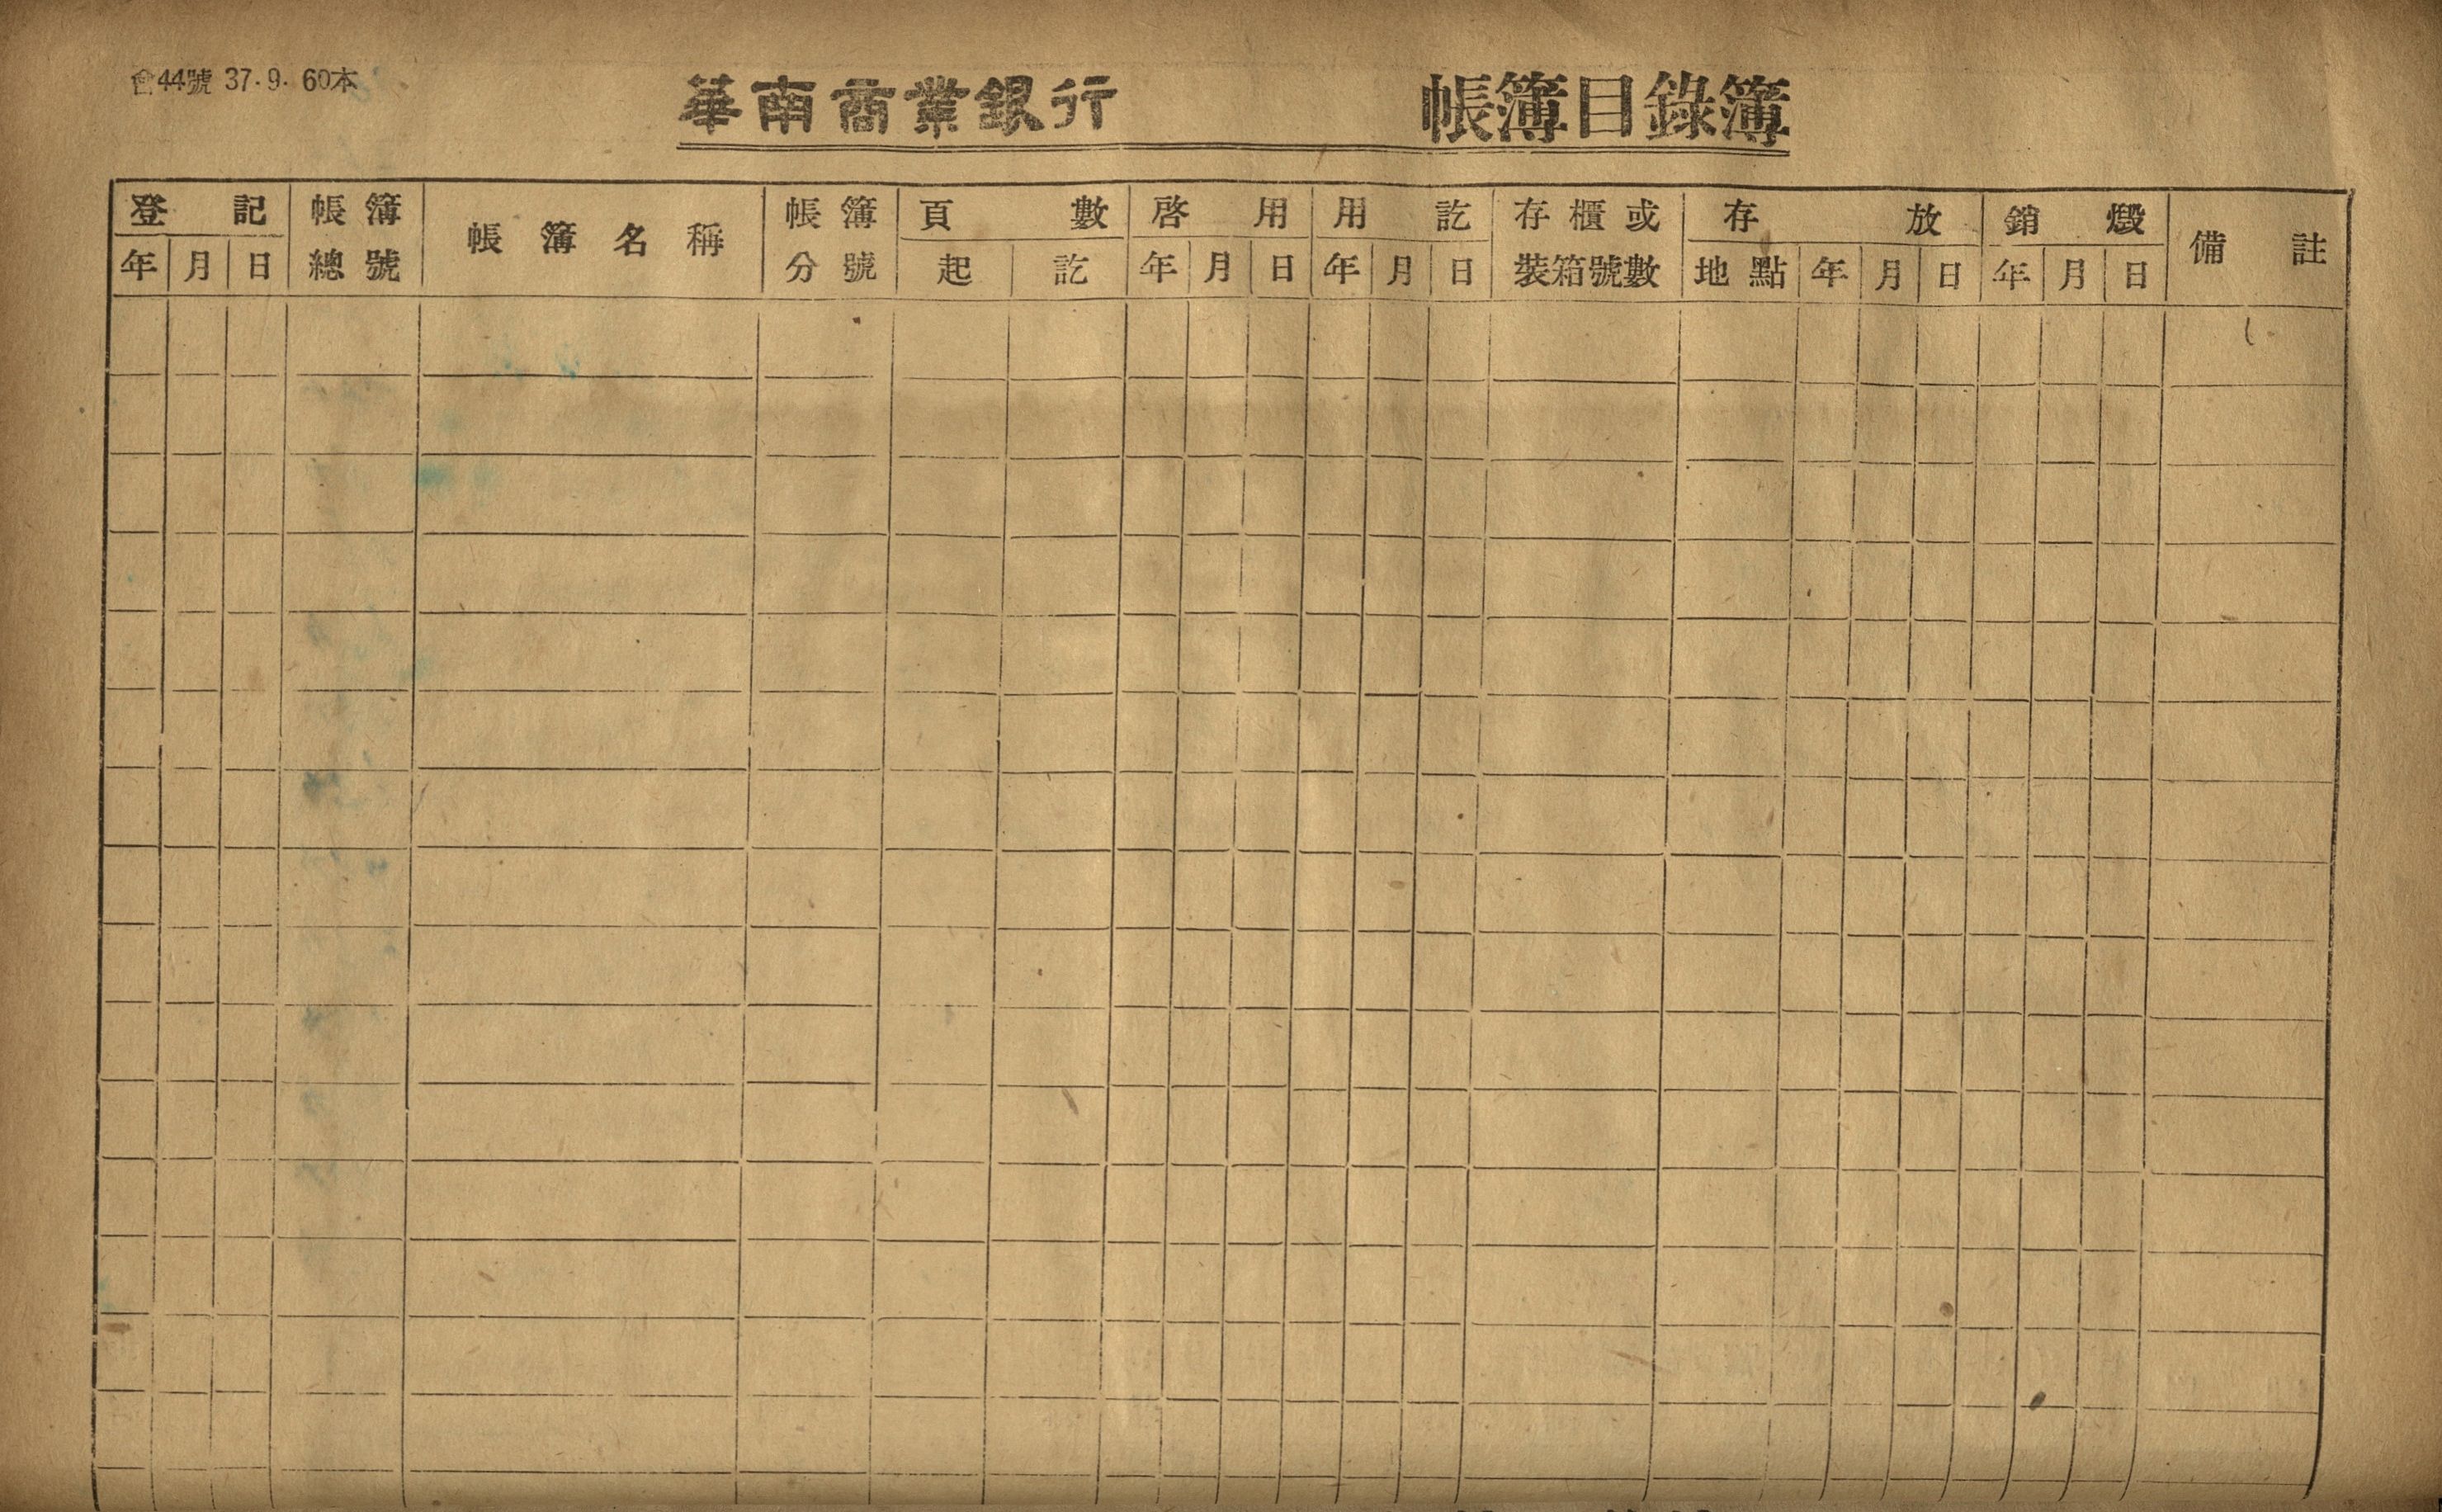 會44號 37.9. 60本
華南商業銀行 帳簿目錄簿
登記 帳簿 帳簿名稱 帳簿 頁數 啓用 用訖 存櫃或 存放 銷燬 備註
年 月 日 總號 分號 起 訖 年 月 日 年 月 日 裝箱號數 地點 年 月 日 年 月 日